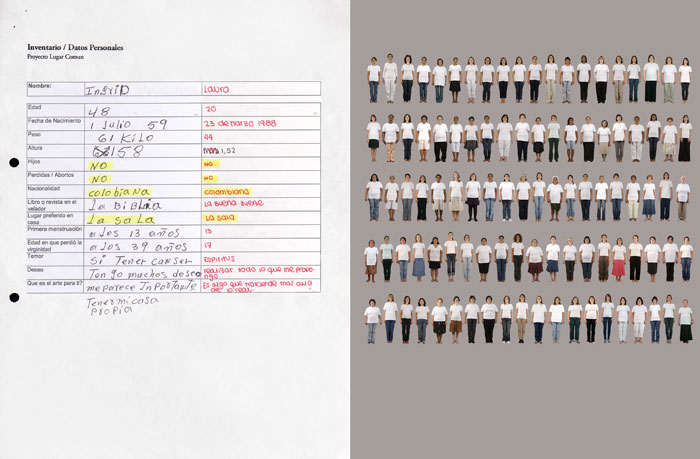 Inventario / Datos Personales
Proyecto Lugar Comun
Nombre: Ingrid Laura
Edad 48 20
Fecha de Nacimiento 1 Julio 59 23 de marzo 1988
Peso 61 Kilo 44
Altura 158 1,52
Hijos NO NO
Perdidas / Abortos NO NO
Nacionalidad colobiana colombiana
Libro o revista en el La Biblia La Buena
velador
Lugar preferido en La sala La sala
casa
Primera menstruación a los 13 años 13
Edad en que perdió la a los 39 años 17
virginidad
Temor Si Tener canser Espiritus
Deseo Tengo muchos deseo realizar todo lo que me propo-
nga
Que es el arte para ti? me parece Inportante Es algo que trasciende mas alla
de lo real
Tener mi casa
propia